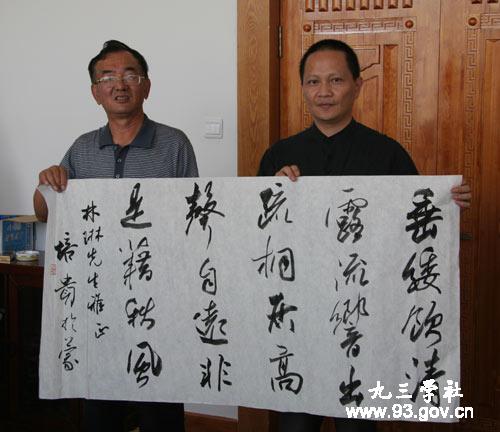 垂緌飲清
露流響出
疏桐居高
聲自遠非
是藉秋風
林琳先生雅正
培貴於
九三学社
www.93.gov.cn